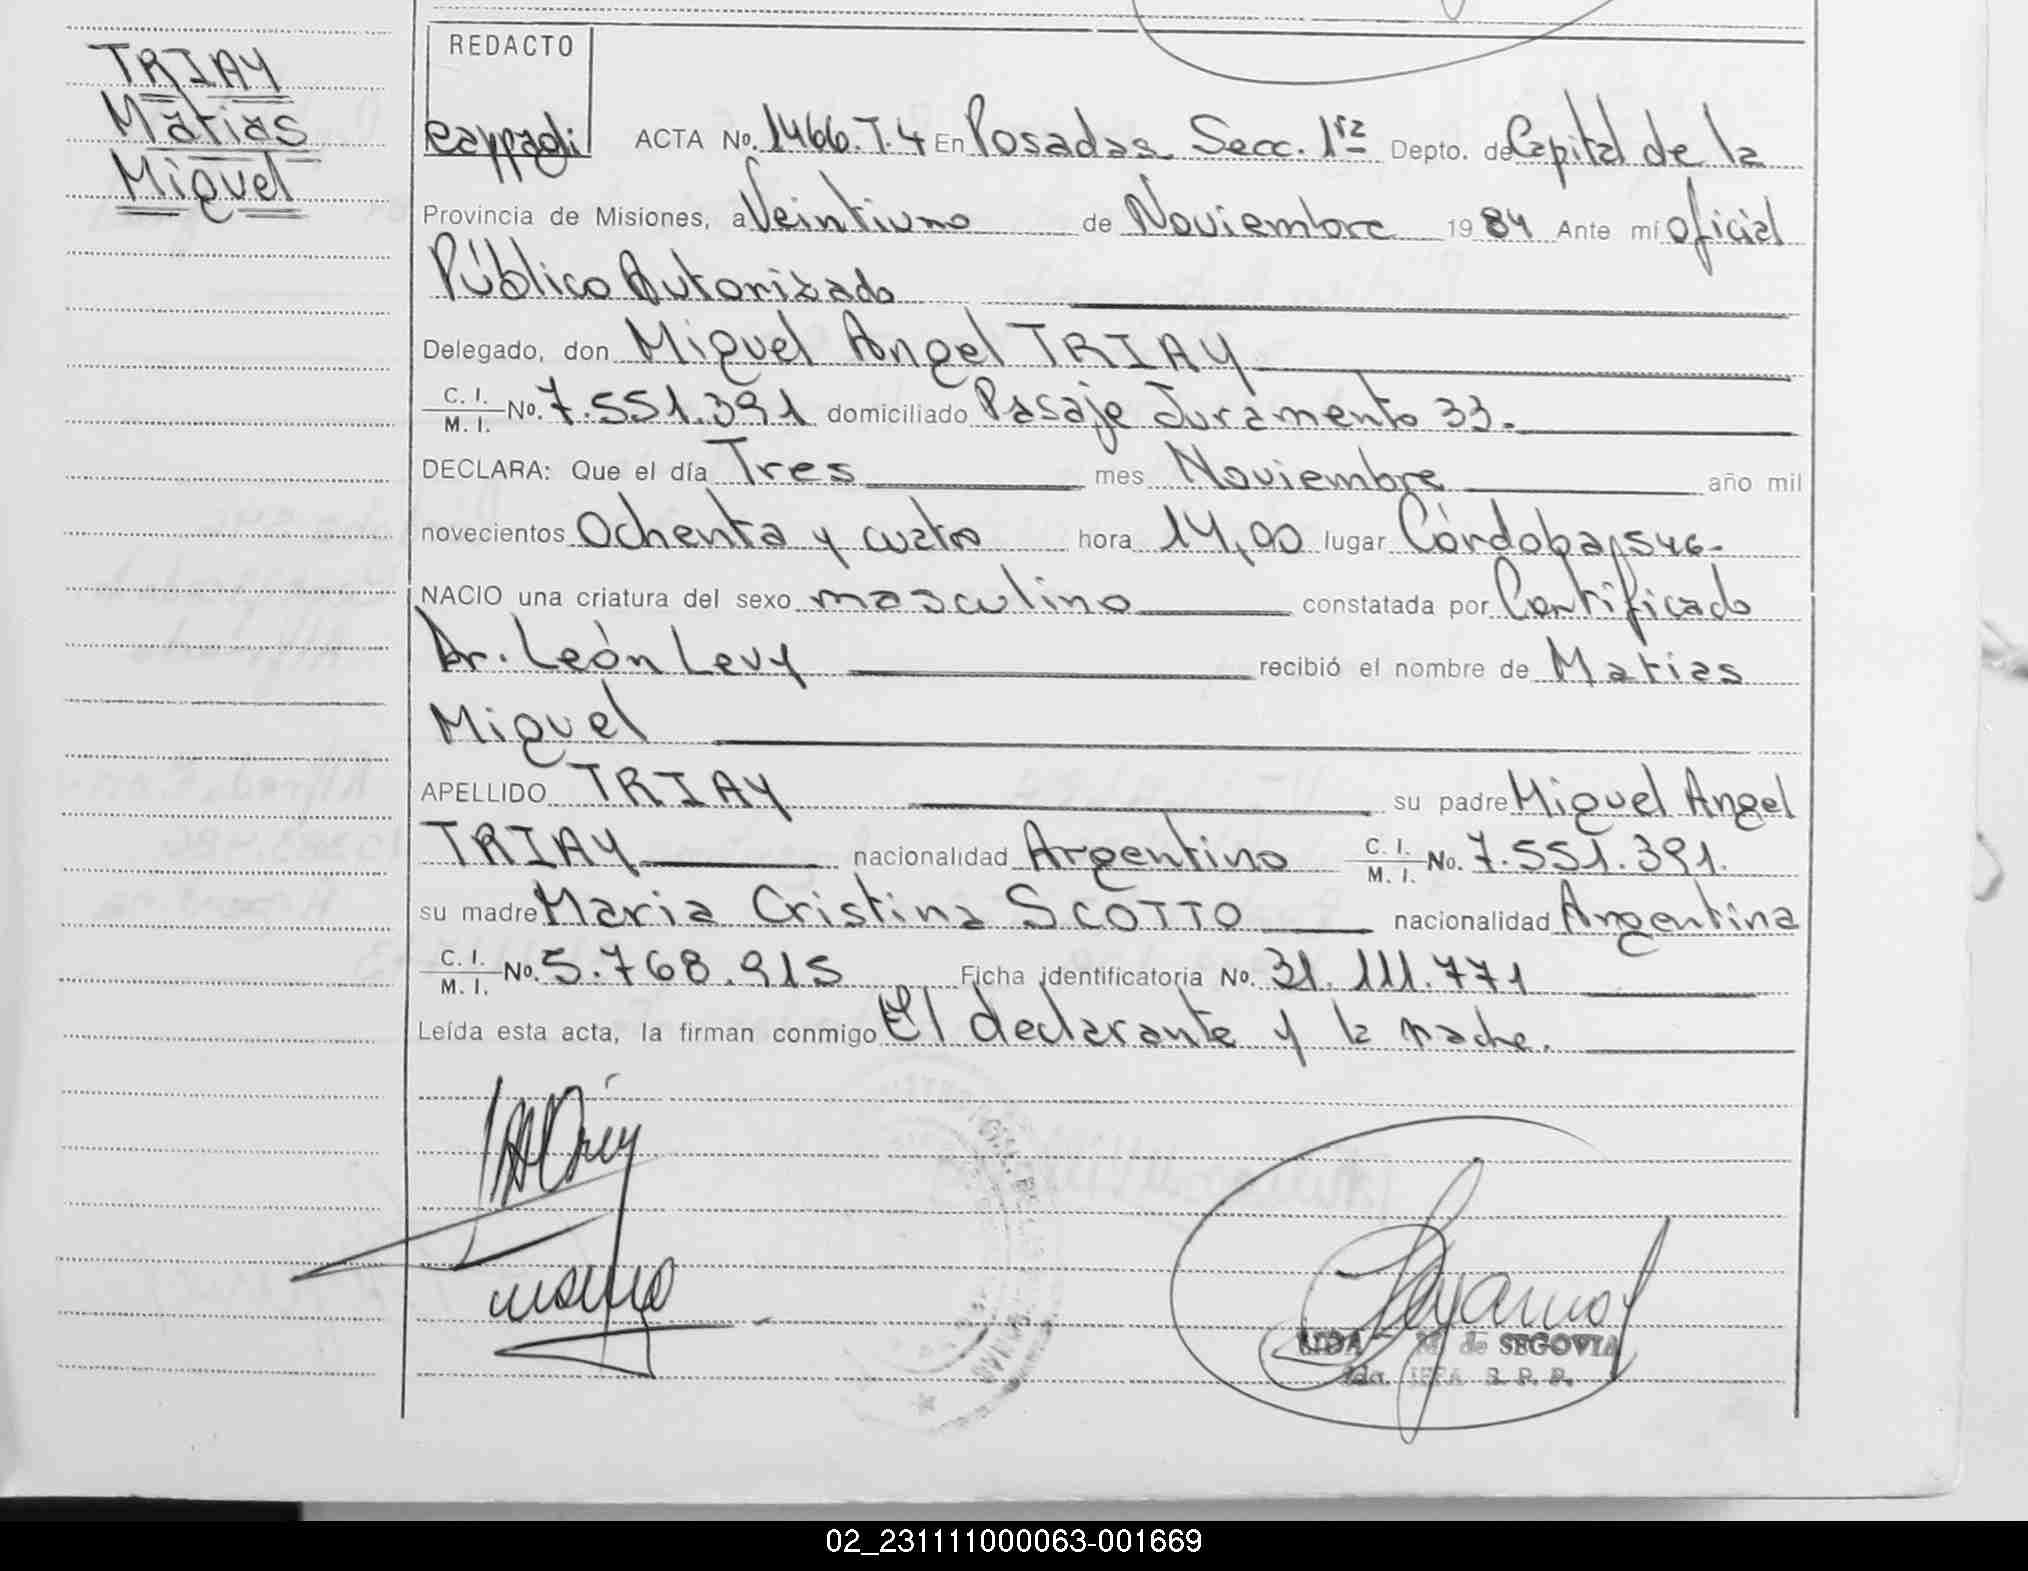 TRIAY
Matias
Miguel
REDACTO
ACTA No. 1466. T. 4 En Posadas Secc. 1ra Depto. de Capital de la
Provincia de Misiones, a Veintiuno de Noviembre 1984 Ante mí oficial
Público Autorizado
Delegado, don Miguel Angel TRIAY
C. I.
M. I. No. 7.551.391 domiciliado Pasaje Juramento 33.
DECLARA: Que el día Tres mes Noviembre año mil
novecientos Ochenta y cuatro hora 14,00 lugar Córdoba 546-
NACIO una criatura del sexo masculino constatada por Certificado
Dr. León Levy recibió el nombre de Matias
Miguel
APELLIDO TRIAY su padre Miguel Angel
TRIAY nacionalidad Argentino C. I.
M. I. No. 7.551.391.
su madre Maria Cristina SCOTTO nacionalidad Argentina
C. I.
M. I. No. 5.768.915 Ficha identificatoria No. 31.111.771
Leída esta acta, la firman conmigo El declarante y la madre.
AIDA M. de SEGOVIA
JEFA R. P. P.
02_231111000063-001669